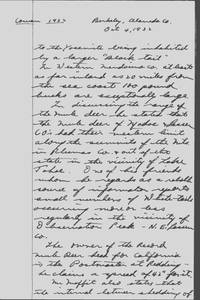 Cowan 1932 Berkeley, Alameda Co.
Oct 4, 1932
to the Yosemite being inhabited
by a larger "black tail"
In Western Mendocino Co. at least
as far inland as 20 miles from
the sea coast 100 pound
bucks are exceptionally large
In discussing the range of
the mule deer he stated that
the mule deer of Modoc, Lassen
Co's had their western limit
along the summits of the Mts
in Plumas Co. & out of the
state in the vicinity of Lake
Tahoe. One of his friends
whom he regards as a reliable
source of information reports
small numbers of White-tails
occurring more or less
regularly in the vicinity of
Observation Peak - N.E. Lassen
Co.
The owner of the record
mule deer head for California
is the Postmaster at Redding -
he claims a spread of for it.
Mr. Moffit also states that
the interval between shedding of